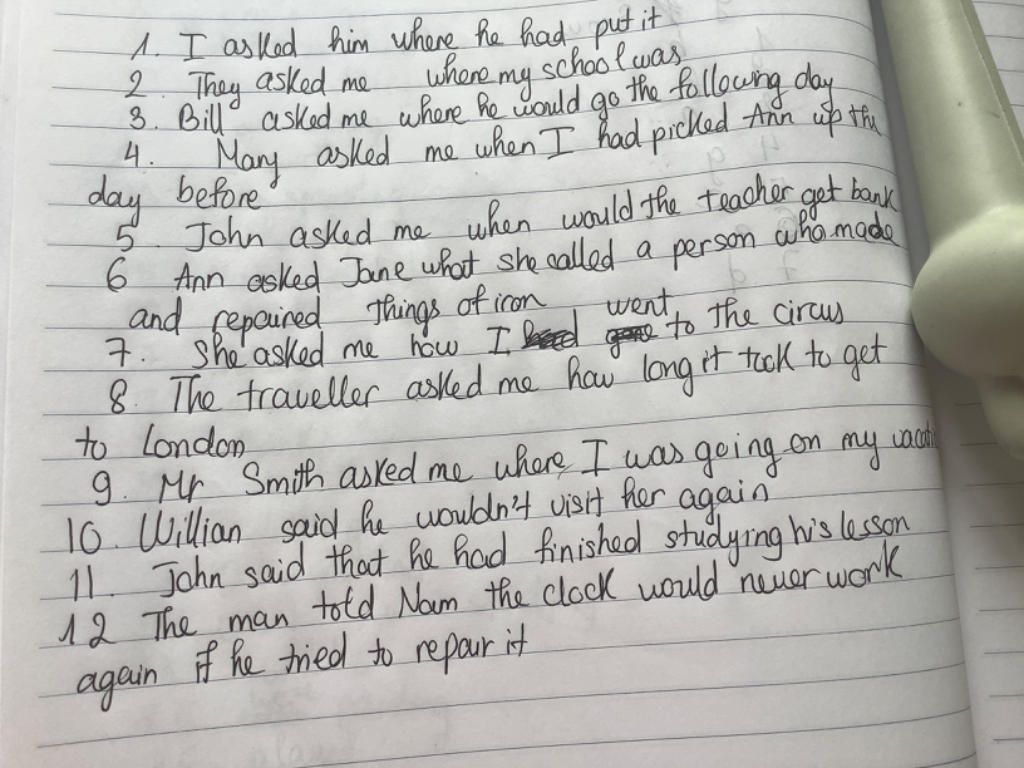 1. I asked him where he had put it
2. They asked me where my school was
3. Bill asked me where he would go the following day
4. Mary asked me when I had picked Ann up the
day before
5 John asked me when would the teacher get bank
6 Ann asked Jane what she called a person who made
and repaired things of iron
7. She asked me how I went to the circus
8. The traveller asked me how long it took to get
to London
9. Mr Smith asked me where I was going on my
10. Willian said he wouldn't visit her again
11. John said that he had finished studying his lesson
12 The man told Nam the clock would never work
again if he tried to repair it